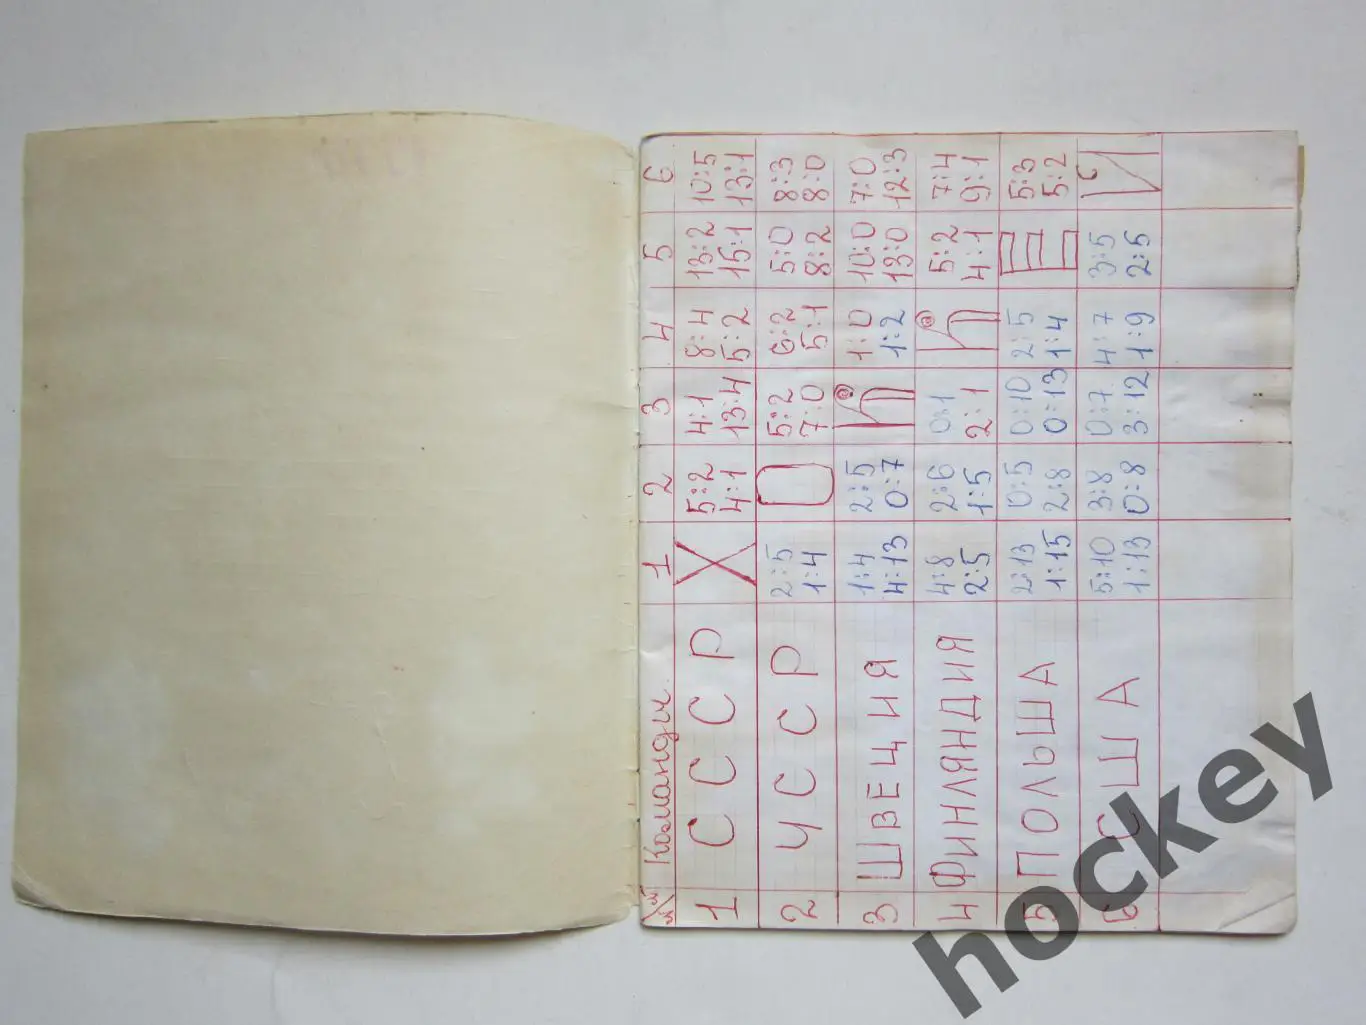 №№ Команды 1 2 3 4 5 6
1 СССР Х 5:2 4:1 8:4 13:2 10:5
4:1 13:4 5:2 15:1 13:1
2 ЧССР 2:5 О 5:2 6:2 5:0 8:3
1:4 7:0 5:1 8:2 8:0
3 ШВЕЦИЯ 1:4 2:5 К 1:0 10:0 7:0
4:13 0:7 1:2 13:0 12:3
4 ФИНЛЯНДИЯ 4:8 2:6 0:1 К 5:2 7:4
2:5 1:5 2:1 4:1 9:1
5 ПОЛЬША 2:13 0:5 0:10 2:5 Е 5:3
1:15 2:8 0:13 1:4 5:2
6 США 5:10 3:8 0:7 4:7 3:5 Й
1:13 0:8 3:12 1:9 2:5
hockey